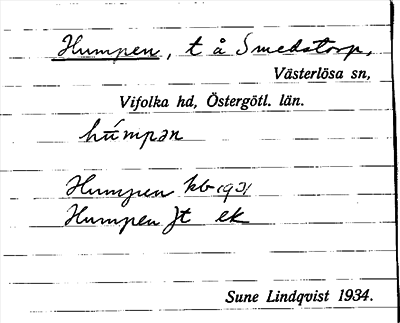 Humpen, t å Smedstorp,
Västerlösa sn,
Vifolka hd, Östergötl. län.
húmpən
Humpen kb 1931
Humpen Jt ek
Sune Lindqvist 1934.